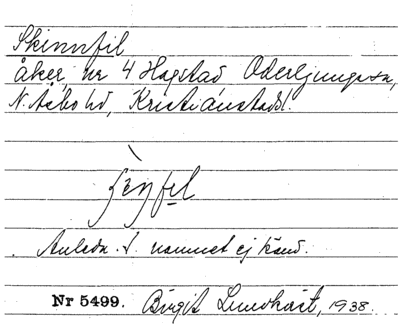 Skinnfil
åker, nr 4 Hagstad Oderljunga sn,
N. Åsbo hd, Kristianstads l.
ʃeŋfil
Anledn. t. namnet ej känd.
Nr 5499. Birgit Lundkvist, 1938.